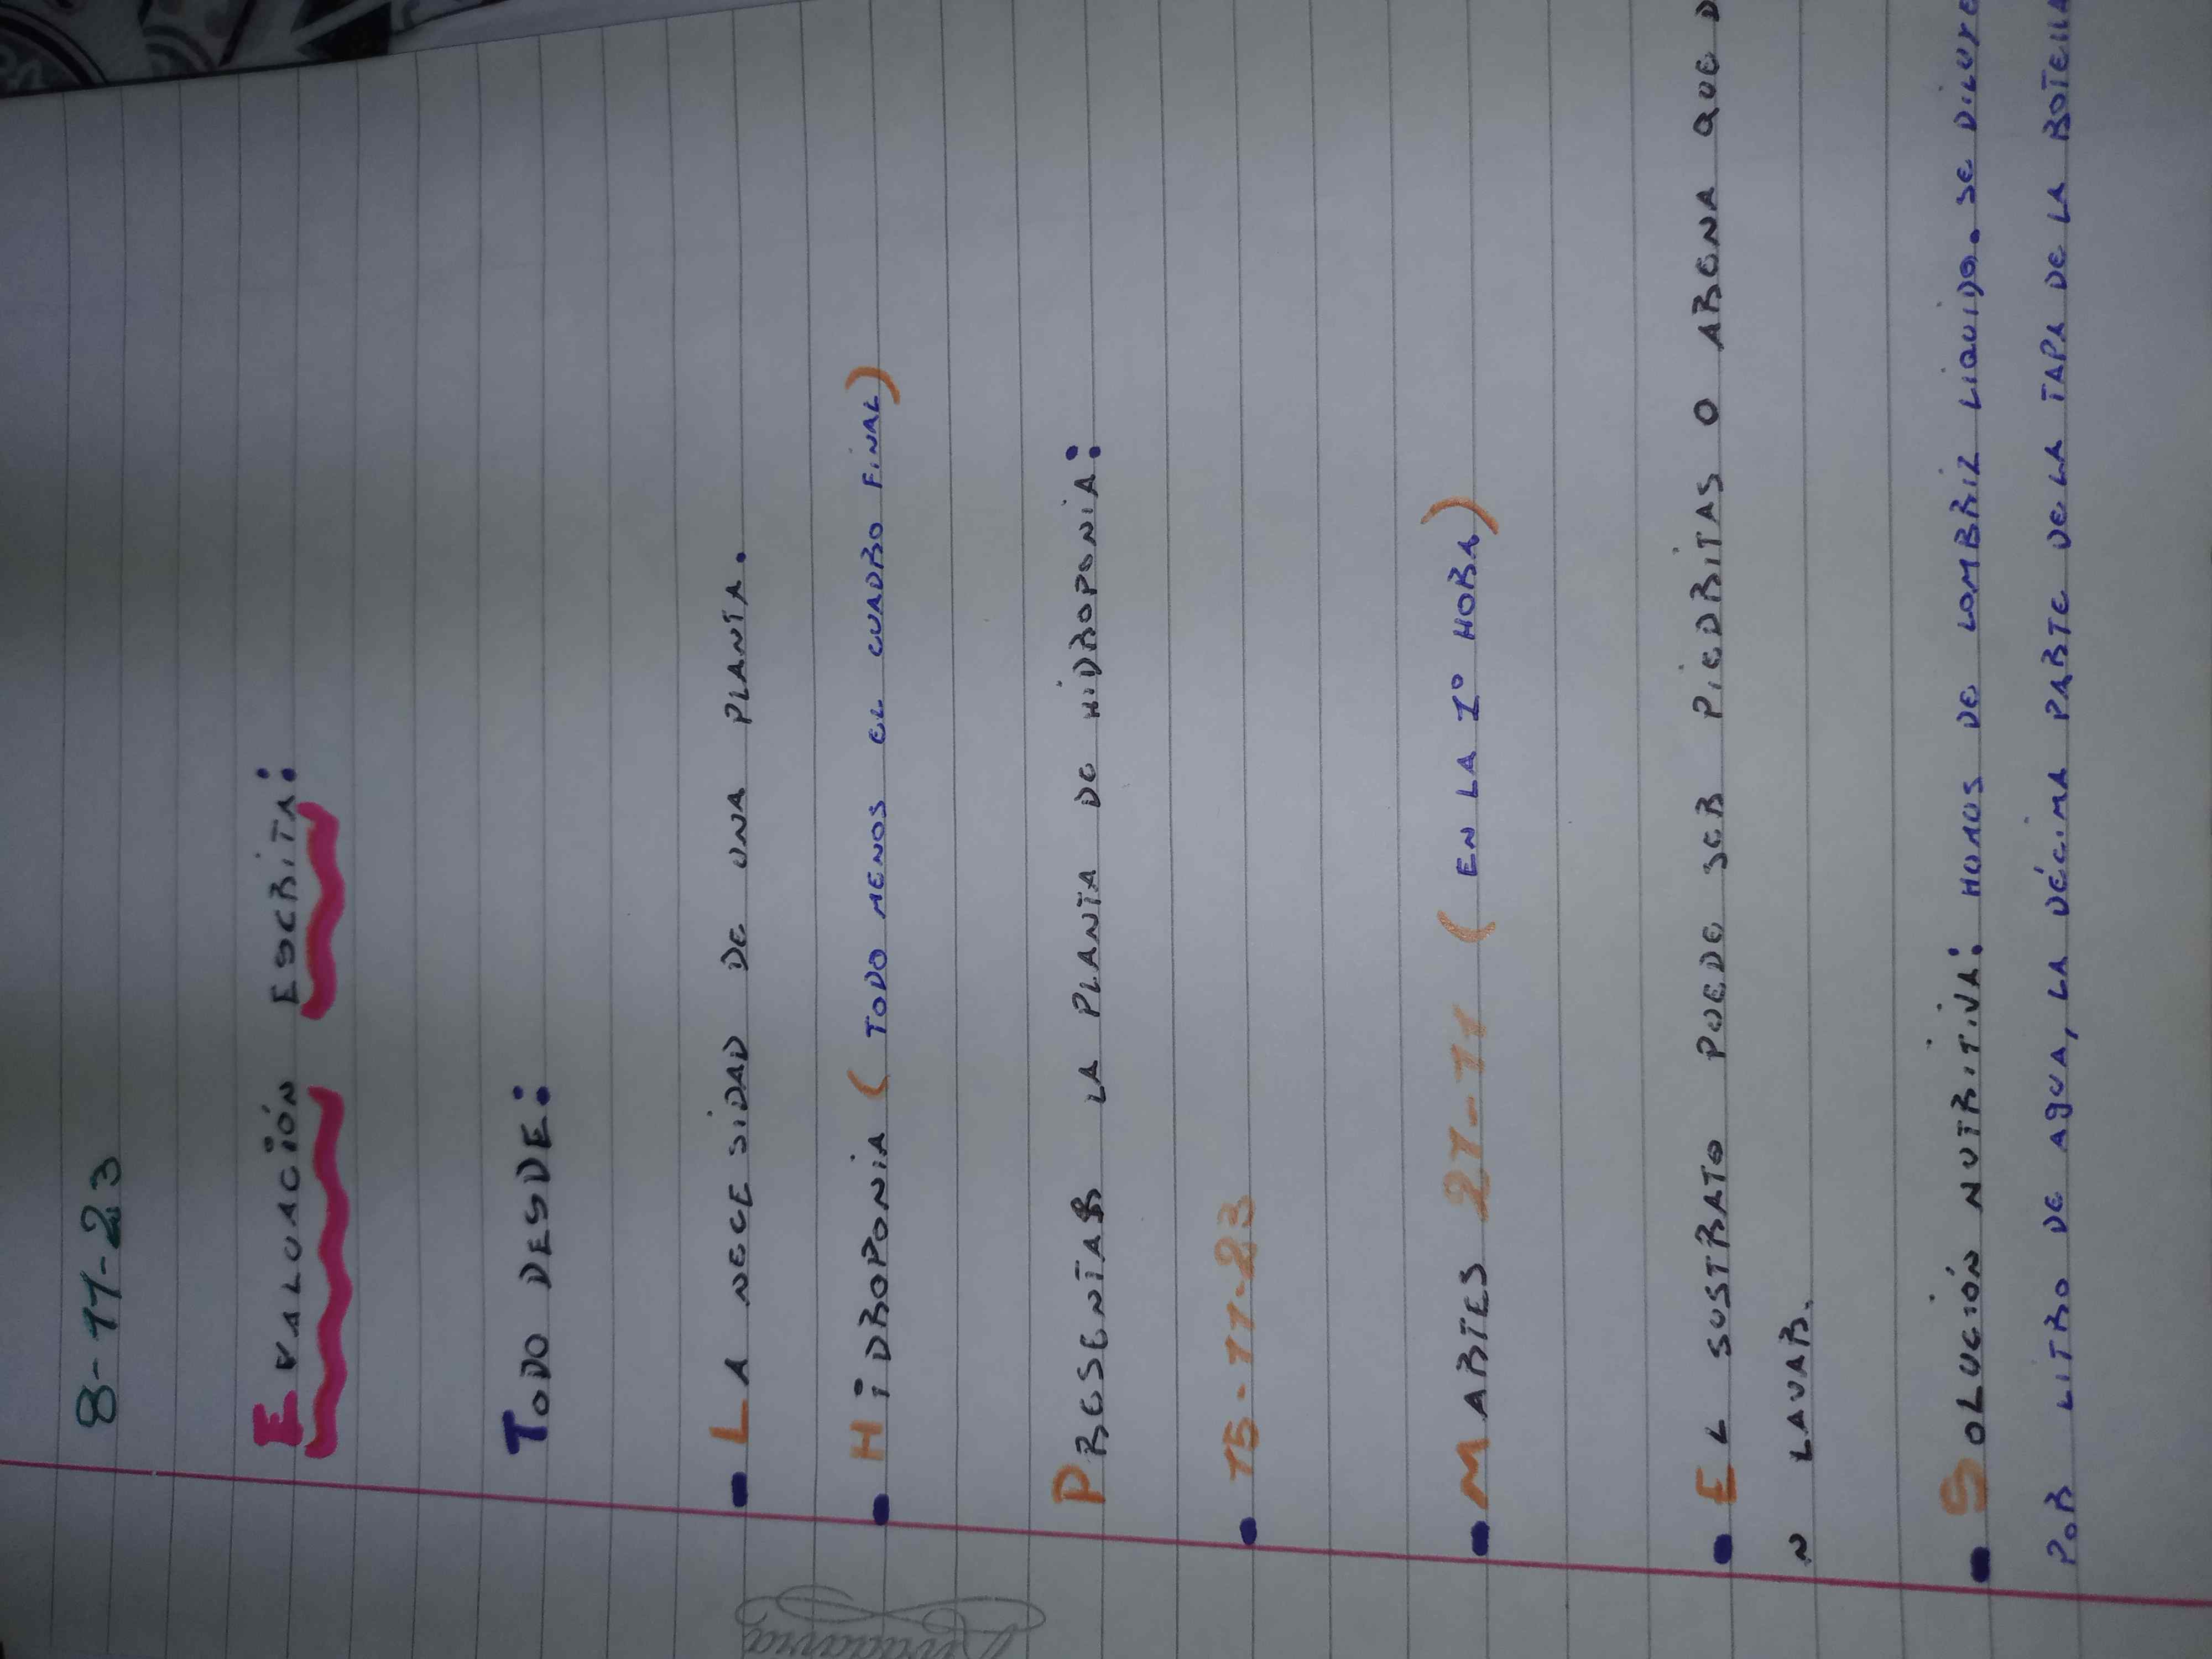 8-11-23
EVALUACIÓN ESCRITA:
TODO DESDE:
- LA NECESIDAD DE UNA PLANTA.
- HIDROPONIA (TODO MENOS EL CUADRO FINAL)
PRESENTAR LA PLANTA DE HIDROPONIA:
- 15-11-23
- MARTES 21-11 (EN LA 1° HORA)
- EL SUSTRATO PUEDE SER PIEDRITAS O ARENA QUE D
N LAVAR.
- SOLUCIÓN NUTRITIVA: HUMUS DE LOMBRIZ LIQUIDO. SE DILUYE
POR LITRO DE AGUA, LA DÉCIMA PARTE DE LA TAPA DE LA BOTELLA